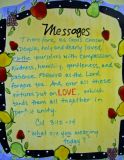 Messages
Therefore, as God's chosen
people, holy and dearly loved,
clothe yourselves with compassion,
kindness, humility, gentleness, and
patience. Forgive as the Lord
forgave you. And over all these
virtues put on LOVE, which
binds them all together in
perfect unity.
Col 3:12-14
"What are you wearing
today?"